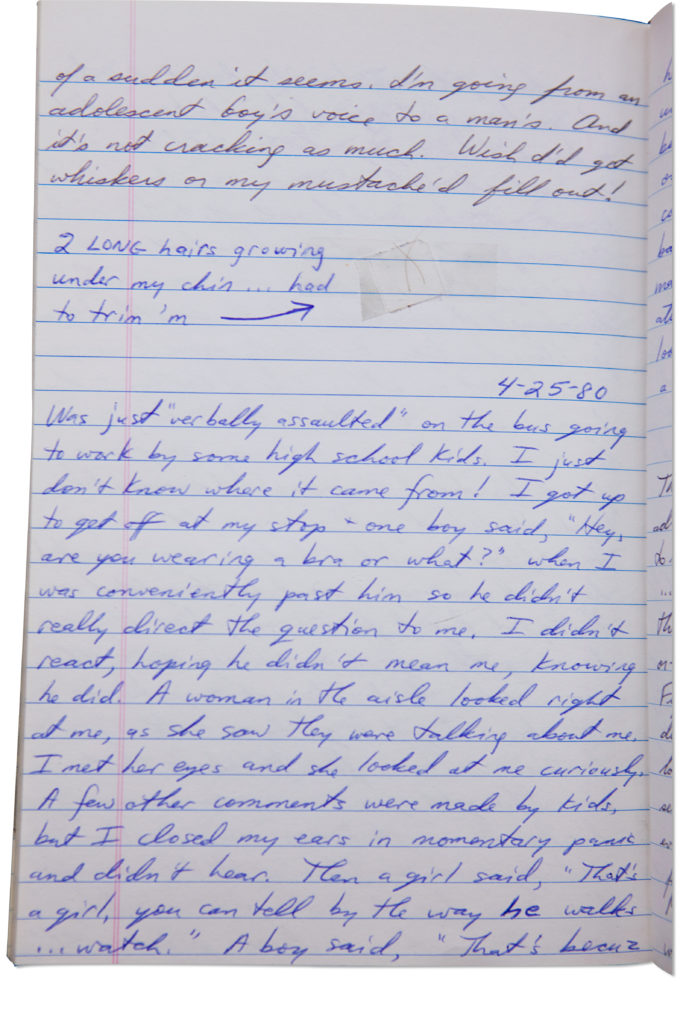 of a sudden it seems. I'm going from an
adolescent boy's voice to a man's. And
it's not cracking as much. Wish I'd get
whiskers or my mustache'd fill out!
2 LONG hairs growing
under my chin... had
to trim 'm
4-25-80
Was just "verbally assaulted" on the bus going
to work by some high school kids. I just
don't know where it came from! I got up
to get off at my stop + one boy said, "Hey,
are you wearing a bra or what?" when I
was conveniently past him so he didn't
really direct the question to me. I didn't
react, hoping he didn't mean me, knowing
he did. A woman in the aisle looked right
at me, as she saw they were talking about me.
I met her eyes and she looked at me curiously.
A few other comments were made by kids,
but I closed my ears in momentary panic
and didn't hear. Then a girl said, "That's
a girl, you can tell by the way he walks
...watch." A boy said, "That's becuz